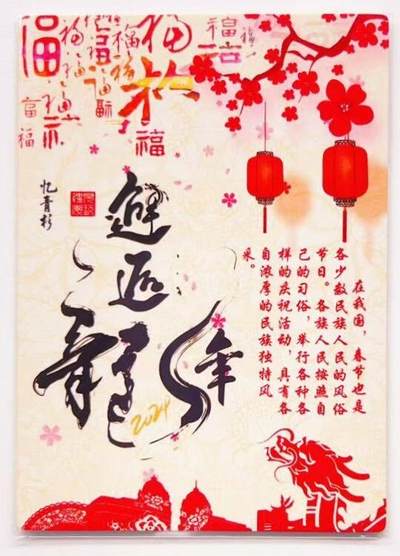 福
福
福
福
福
福
福
在我国，春节也是
各少数民族人民的风俗
节日。各族人民按照自
己的习俗，举行各种各
样的庆祝活动，具有各
自浓厚的民族独特风
采。
邂逅
龍年
2024
忆青杉